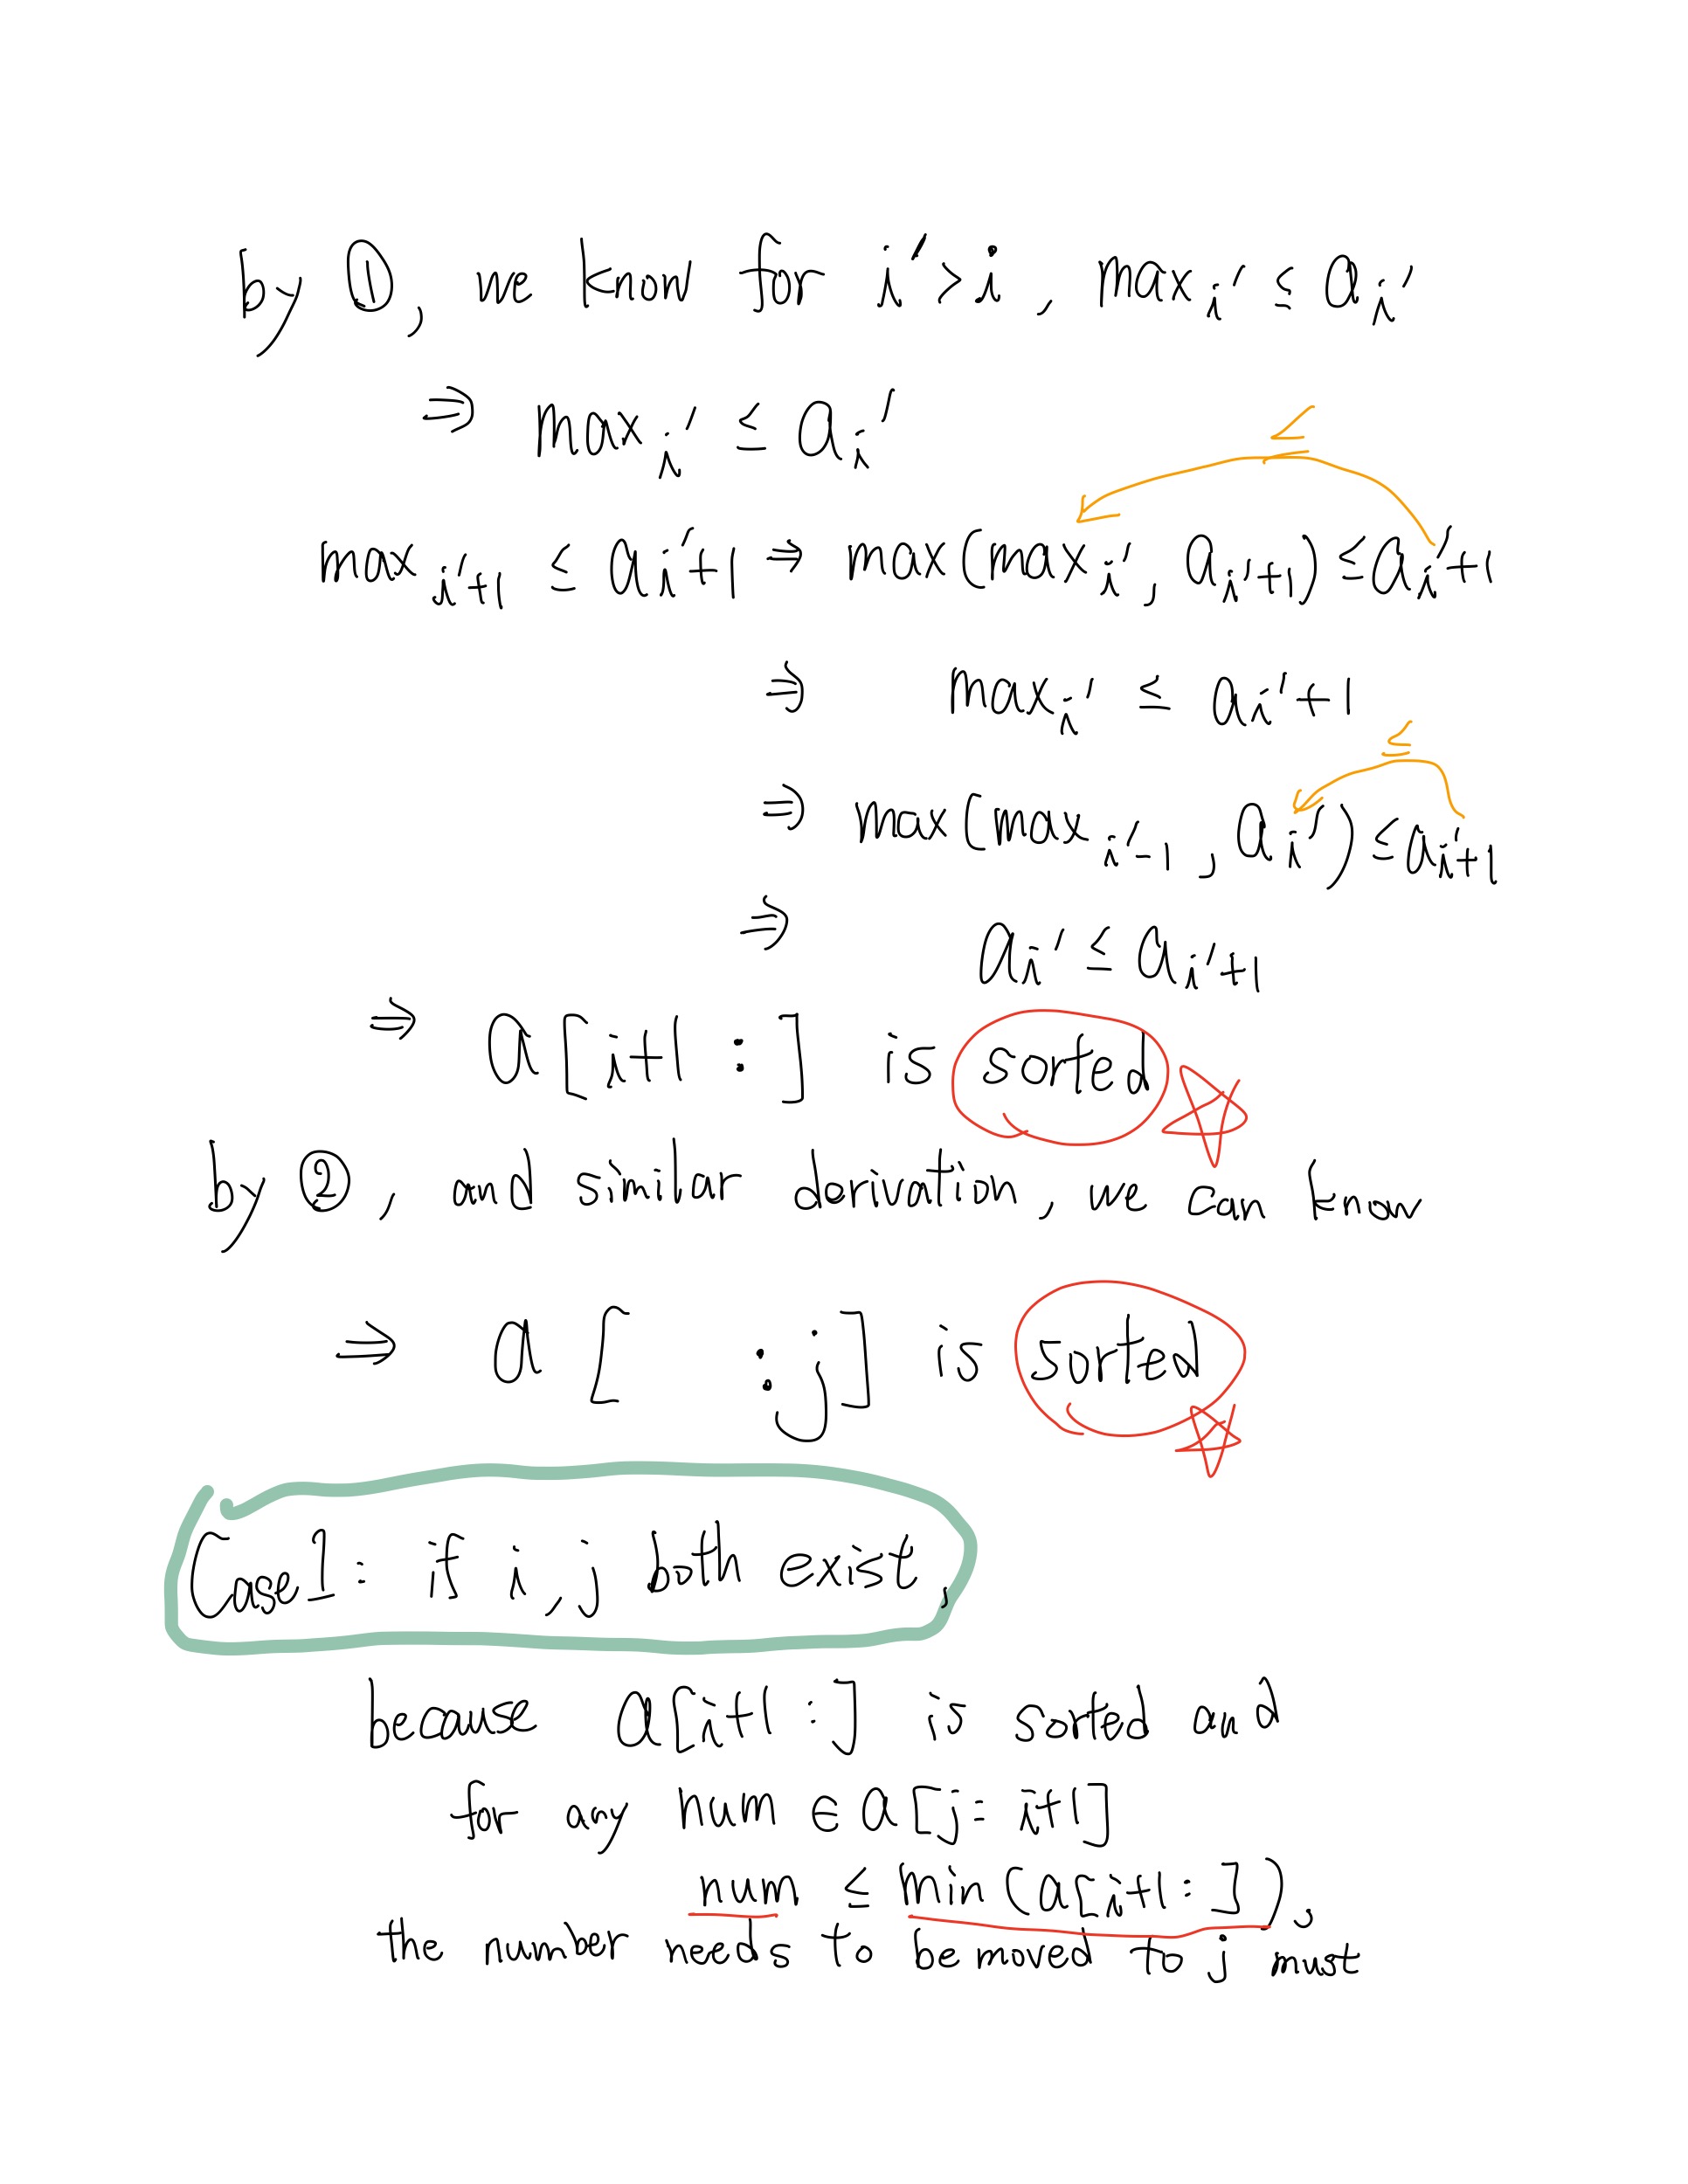 by ①, we know for i'>i, max_i' ≤ a_i'
⇒ max_i' ≤ a_i'
≤
max_i'+1 ≤ a_i'+1 ⇒ max(max_i', a_i'+1) ≤ a_i'+1
⇒ max_i' ≤ a_i'+1
≤
⇒ max(max_i'-1, a_i') ≤ a_i'+1
⇒ a_i' ≤ a_i'+1
⇒ a[i+1 : ] is sorted
by ②, and similar derivation, we can know
⇒ a[ :j] is sorted
Case1: if i, j both exist,
because a[i+1 : ] is sorted and
for any num ∈ a[j: i+1]
num ≤ min(a[i+1: ]),
the number needs to be moved to j must